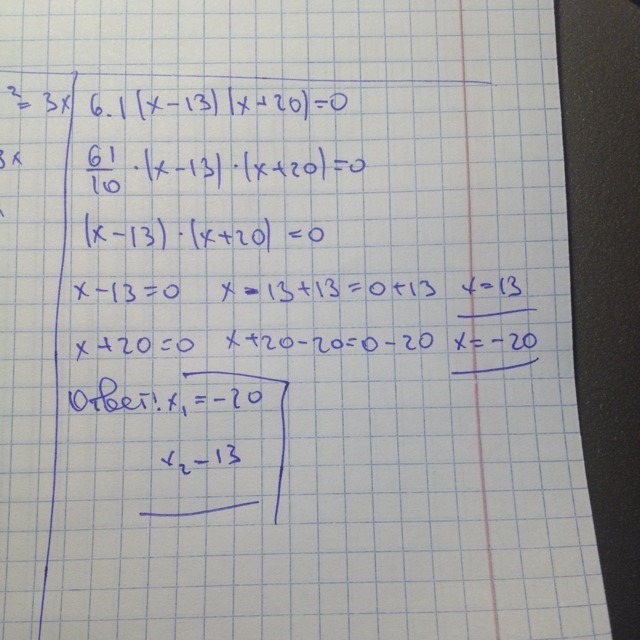 ²= 3x
6.1(x-13)(x+20)=0
3x
61/10 ·(x-13)·(x+20)=0
(x-13)·(x+20)=0
x-13=0 x-13+13=0+13 x=13
x+20=0 x+20-20=0-20 x=-20
Ответ: x₁=-20
x₂-13